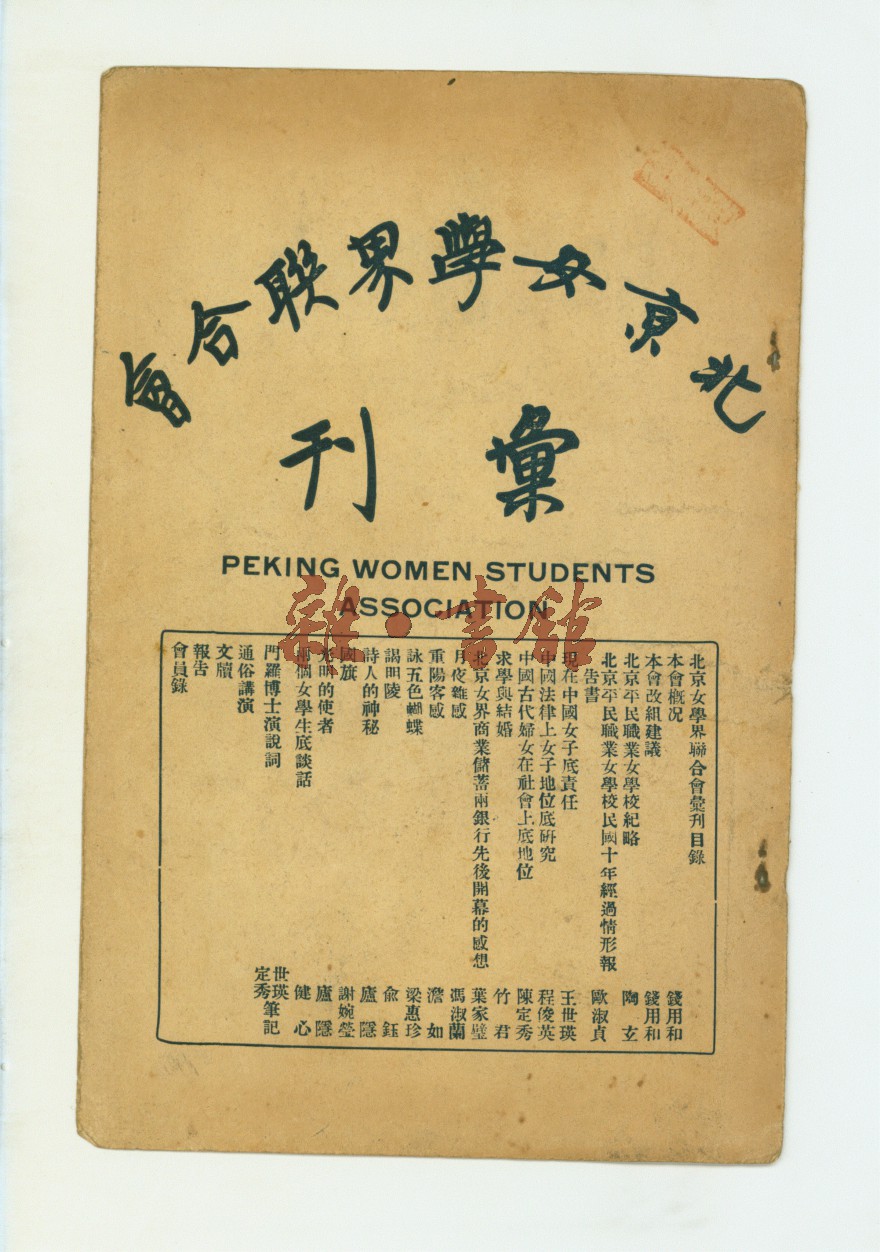 北京女學界聯合會
彙刊
PEKING WOMEN STUDENTS
ASSOCIATION
雜·書館
北京女學界聯合會彙刊目錄
本會概况 錢用和
本會改組建議 錢用和
北京平民職業女學校紀略 陶玄
北京平民職業女學校民國十年經過情形報
告書 歐淑貞
現在中國女子底責任 王世瑛
中國法律上女子地位底研究 程俊英
中國古代婦女在社會上底地位 陳定秀
求學與結婚 竹君
北京女界商業儲蓄兩銀行先後開幕的感想 葉家璧
月夜雜感 馮淑蘭
重陽客感 澹如
詠五色蝴蝶 梁惠珍
謁明陵 俞鈺
詩人的神秘 廬隱
國旗 謝婉瑩
光明的使者 廬隱
兩個女學生底談話 健心
門羅博士演說詞 世瑛
定秀筆記
通俗講演
文牘
報告
會員錄